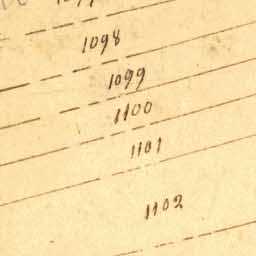 1098
1099
1100
1101
1102